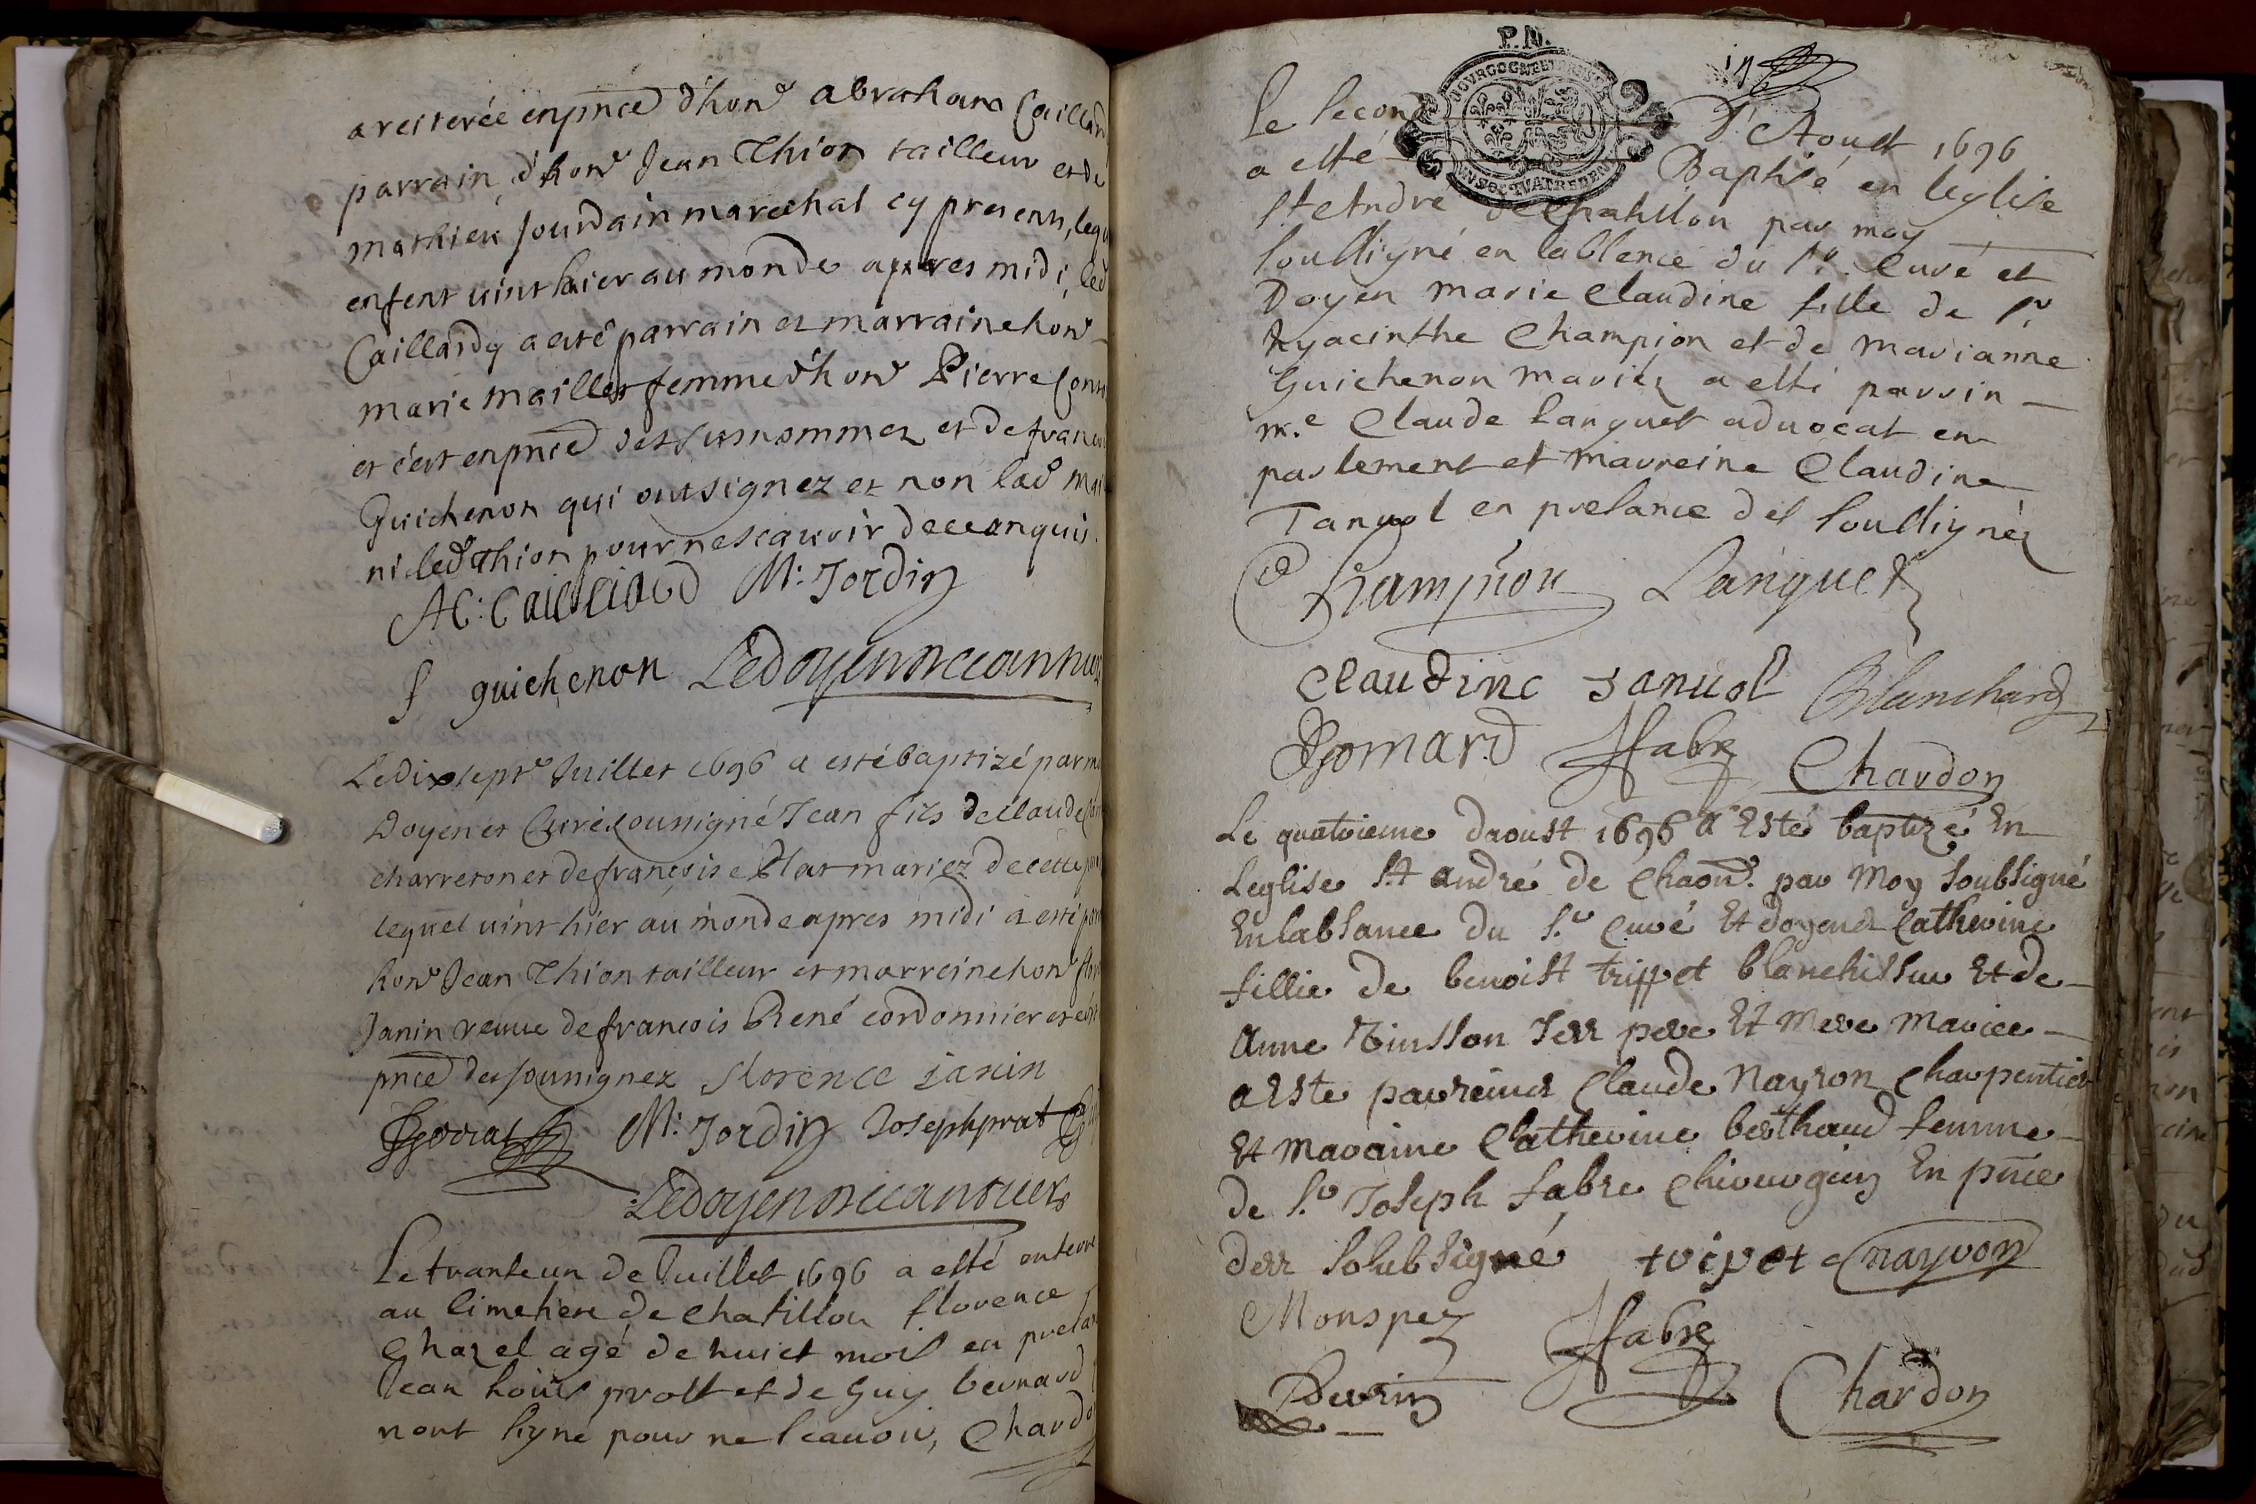 a reiterée en pnce d'honᵉ abraham Caillard
parrain, d'honᵉ Jean Thion tailleur et de
mathieu Jourdain marechal cy presents, lequ
enfent vint hier au monde apres midi, led
Caillardy a esté parrain et marraine honᵉ
marie maillet femme d'honᵉ Pierre
et c'est en pnce des surnommez et de francois
Guichenon qui ont signez et non lad
ni led Thion pour ne scavoir de ce enquis.
AC: Cailliard M: Jordin
f guichenon Ledoyen
Le dix septᵉ Juillet 1696 a esté baptizé par m
Doyen et Curé sousigné Jean fils de Claude
charreton et de francoise Blat mariez de cette
lequel vint hier au monde apres midi a esté par
honᵉ Jean Thion tailleur et marreine honᵉ flor
Janin veuve de francois René cordonnier et
pnce des sousignez florence janin
M: Jordin Joseph prat
Ledoyen
Le tranteun de Juillet 1696 a esté enterre
au Cimetiere de Chatillon florence
Chazel agé de huict mois en presan
Jean louis prost et de Guy bernard
n'ont signé pour ne scauoir, Chardo
P.N.
Le second d'Aoust 1696
a esté Baptisé en léglise
St André de Chatillon par moy
soussigné en l'absence du Sr. Curé et
Doyen marie Claudine fille de Sr
hyacinthe Champion et de marianne
Guichenon mariéz a esté parrin
m.e Claude Languet aduocat en
parlement et marreine Claudine
Tanuol en presance des soussignéz
Champion Languet
Claudine tanuol Blanchard
Bomard Jfabre Chardon
Le quatrieme daoust 1696 a Esté baptizé En
Leglise St andré de Chaon. par Moy soubsigné
En labsance du Sr Curé Et doyend Catherine
fillie de benoist trippet blanchisseur Et de
Anne Tinsson Ses pere Et Mere Mariee
a Este parreind Claude Nayron Charpentier
Et Maraine Catherine berthaud femme
de Sr Joseph fabre Chirurgien En pnce
des Soubsigné tripet nayron
Monspey Jfabre
Perrin Chardon